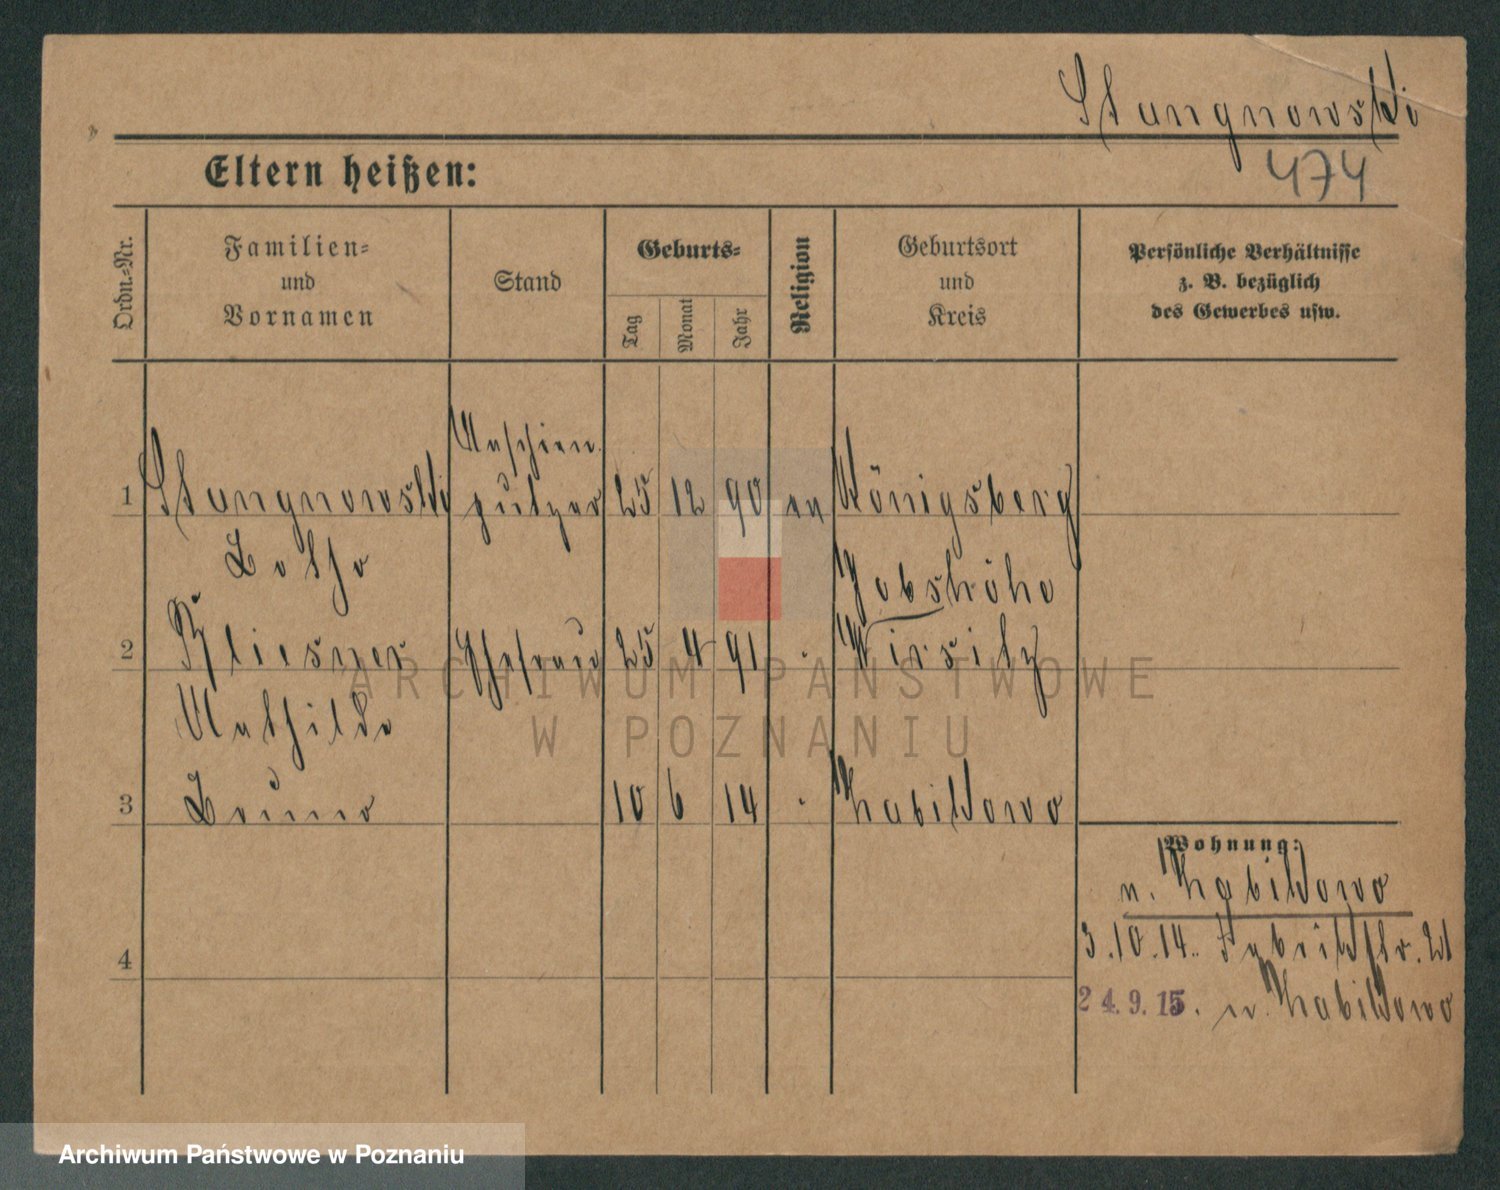 Stangnowski
474
Eltern heißen:
Ordn.-Nr.
Familien-
und
Vornamen
Stand
Geburts-
Tag
Monat
Jahr
Religion
Geburtsort
und
Kreis
Persönliche Verhältnisse
z. B. bezüglich
des Gewerbes usw.
Maschien
1 Stangnowski putzer 25 12 90 ev Königsberg
Botho
Jobshöhe
2 Kliesner Ehefrau 25 4 91 " Wirsitz
Mathilde
3 Bruno 10 6 14 "
Wohnung:
n.
4
3.10.14. Fabrikstr. 21
24.9.15. n.
ARCHIWUM PAŃSTWOWE
W POZNANIU
Archiwum Państwowe w Poznaniu